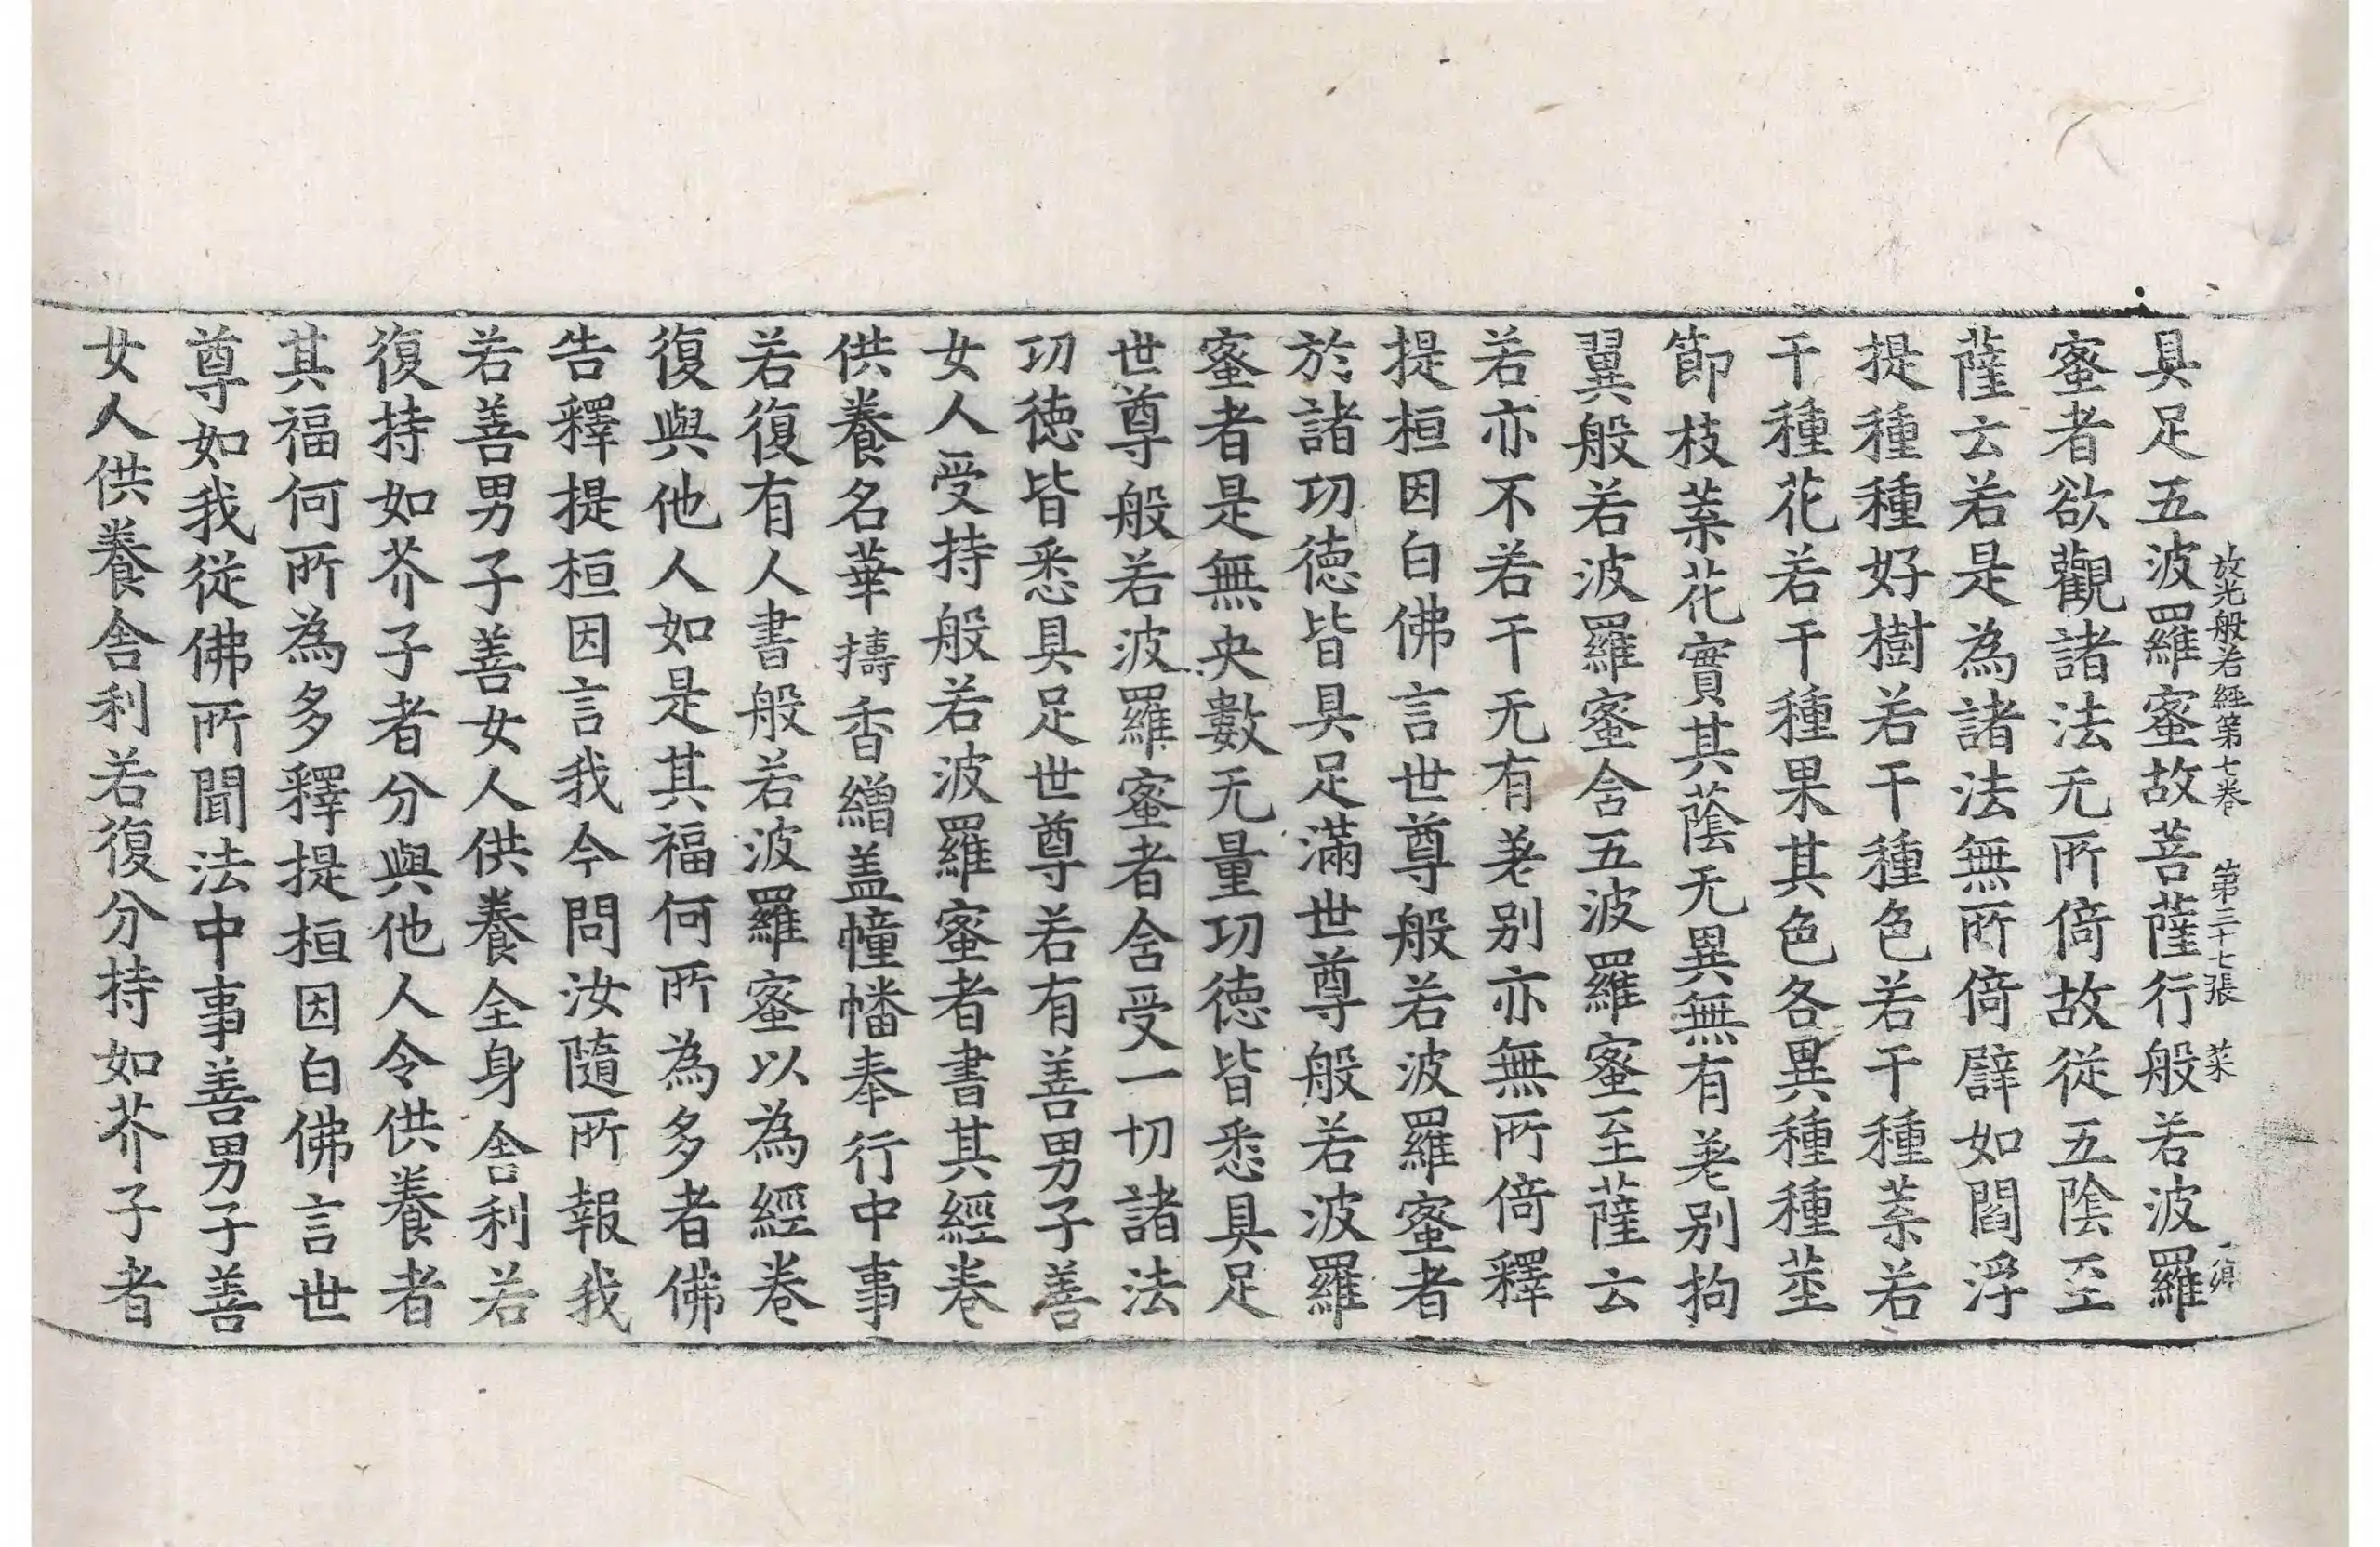 放光般若經第七卷 第三十七張 菜
具足五波羅蜜故菩薩行般若波羅
蜜者欲觀諸法无所倚故從五陰至
薩云若是為諸法無所倚譬如閻浮
提種種好樹若干種色若干種葉若
干種花若干種果其色各異種種莖
節枝葉花實其蔭无異無有差别拘
翼般若波羅蜜含五波羅蜜至薩云
若亦不若干无有差别亦無所倚釋
提桓因白佛言世尊般若波羅蜜者
於諸功徳皆具足滿世尊般若波羅
蜜者是無央數无量功徳皆悉具足
世尊般若波羅蜜者含受一切諸法
功徳皆悉具足世尊若有善男子善
女人受持般若波羅蜜者書其經卷
供養名華擣香繒盖幢幡奉行中事
若復有人書般若波羅蜜以為經卷
復與他人如是其福何所為多者佛
告釋提桓因言我今問汝隨所報我
若善男子善女人供養全身舍利若
復持如芥子者分與他人令供養者
其福何所為多釋提桓因白佛言世
尊如我從佛所聞法中事善男子善
女人供養舍利若復分持如芥子者